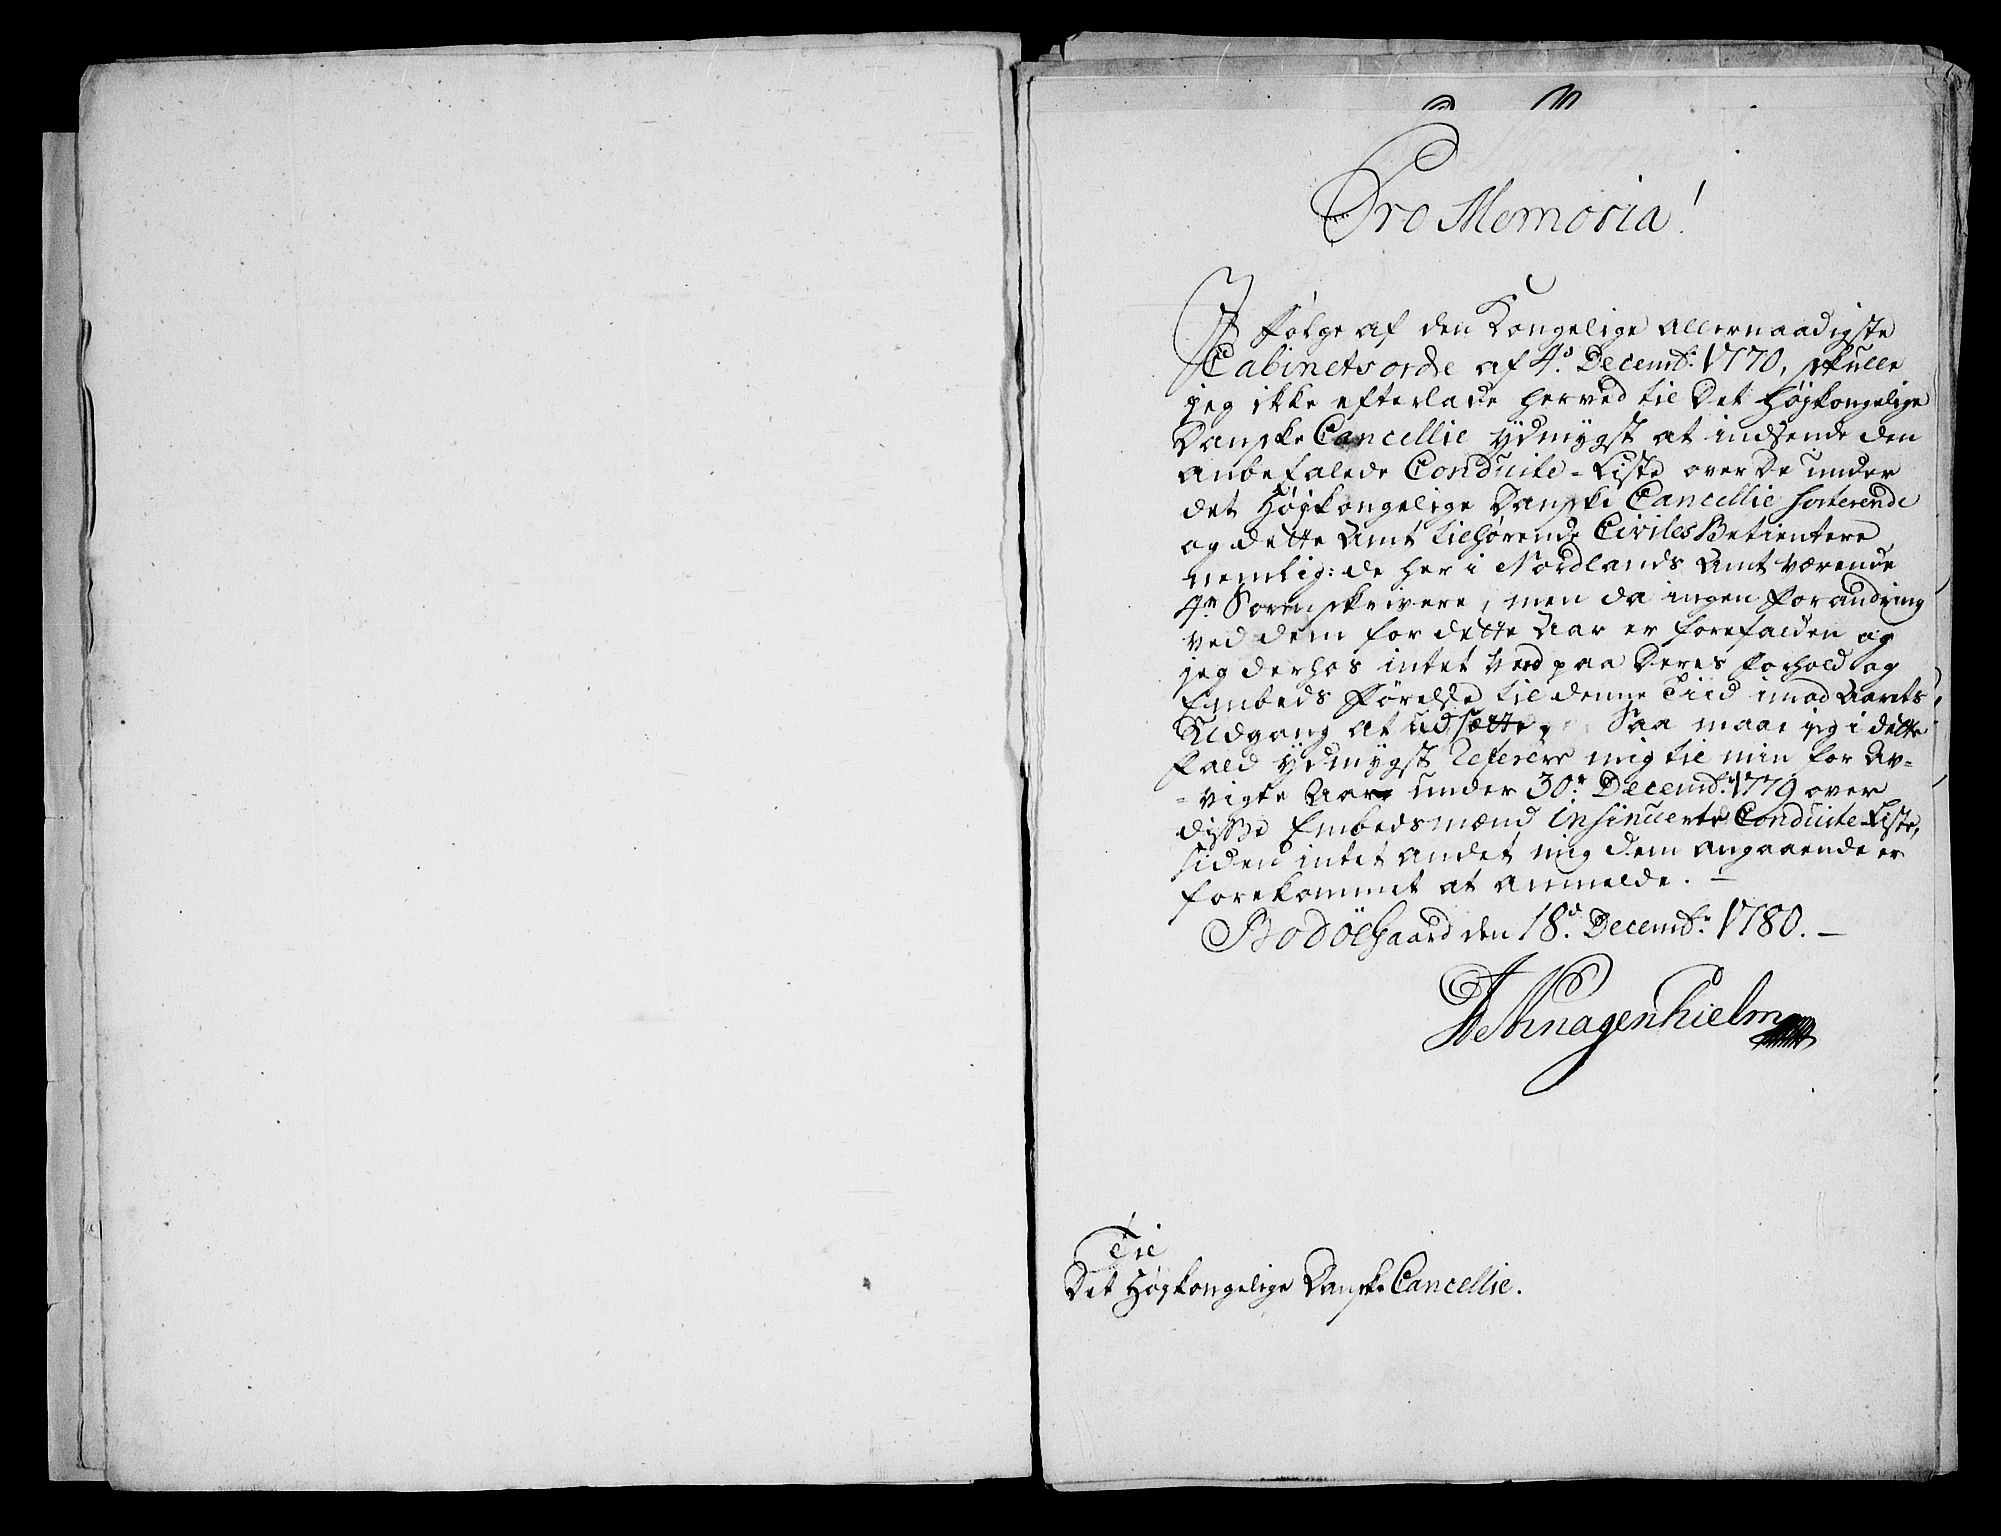 Pro Memoria!
I Følge af den Kongelige allernaadigste
Cabinets orde af 4.d Decemb.r 1770, skulle
jeg ikke efterlade herved til Det Højkongelige
Danske Cancellie ydmygst at indsende den
anbefalede Conduite-Liste over De under
det Højkongelige Danske Cancellie sorterende
og dette Amt tilhørende Civiles Betientere
nemlig: de her i Nordlands Amt værende
4re Sorenskrivere, men da ingen Forandring
ved dem for dette Aar er forefalden og
jeg derhos intet veed paa Deres Forhold og
Embeds Førelse til denne Tiid imod Aarets
Udgang at udsætte, Saa maae jeg i dette
Fald ydmygst referere mig til min for av-
-vigte Aar under 30.te Decemb.r 1779 over
disse Embedsmænd insinuerte Conduite-Liste,
siden intet andet mig dem angaaende er
forekommet at anmelde. –
Bodöegaard den 18.d Decemb.r 1780. –
Knagenhielm
Til
Det Højkongelige Danske Cancellie.